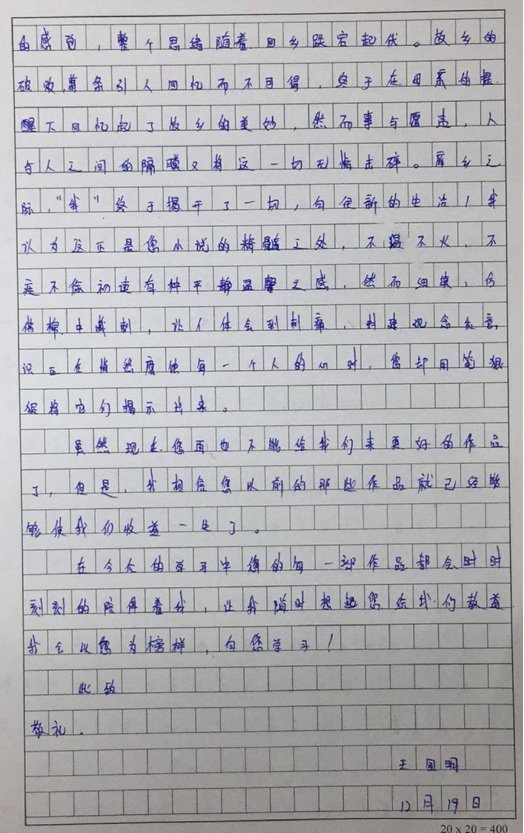 的感到，整个思绪随着回乡跌宕起伏。故乡的
破败萧条引人回忆而不可得，终于在母亲的提
醒下回忆起了故乡的美妙，然而事与愿违，人
与人之间的隔膜又将这一切无情击碎。离乡之
际，"我"终于揭开了一切，向往新的生活！我
认为这正是您小说的精髓之处，不温不火，不
疾不徐初读有种平静温馨之感，然而细读，仿
佛棉中藏刺，让人体会到刺痛，封建观念和意
识正在悄然腐蚀每一个人的心时，您却用笔狠
狠将它们揭示出来。
虽然现在您再也不能给我们来更好的作品
了，但是，我相信您以前的那些作品就已经能
够使我们收益一生了。
在今后的学习中您的每一部作品都会时时
刻刻的陪伴着我，让我随时想起您给我们教益
我会以您为榜样，向您学习！
此致
敬礼。
王
12月19日
20×20=400